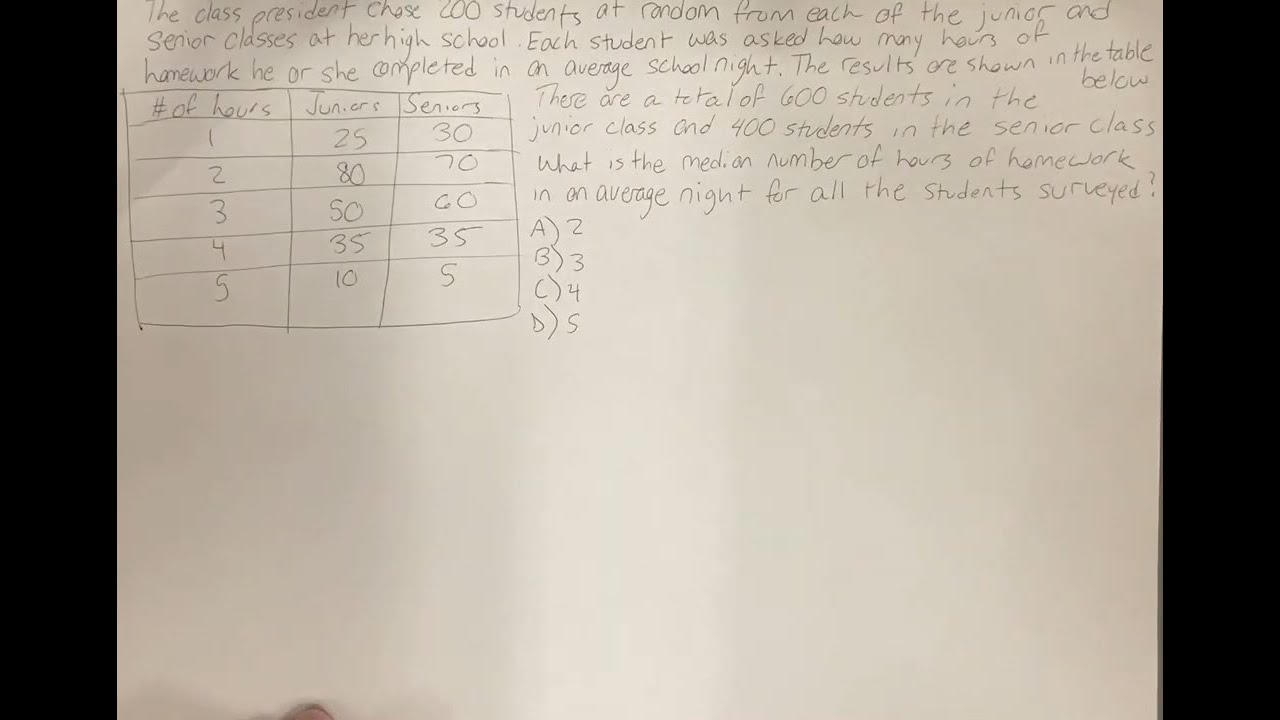 The class president chose 200 students at random from each of the junior and
Senior classes at her high school. Each student was asked how many hours of
homework he or she completed in an average school night. The results are shown in the table
below
# of hours Juniors Seniors
1 25 30
2 80 70
3 50 60
4 35 35
5 10 5
There are a total of 600 students in the
junior class and 400 students in the senior class
What is the median number of hours of homework
in an average night for all the students surveyed?
A) 2
B) 3
C) 4
D) 5